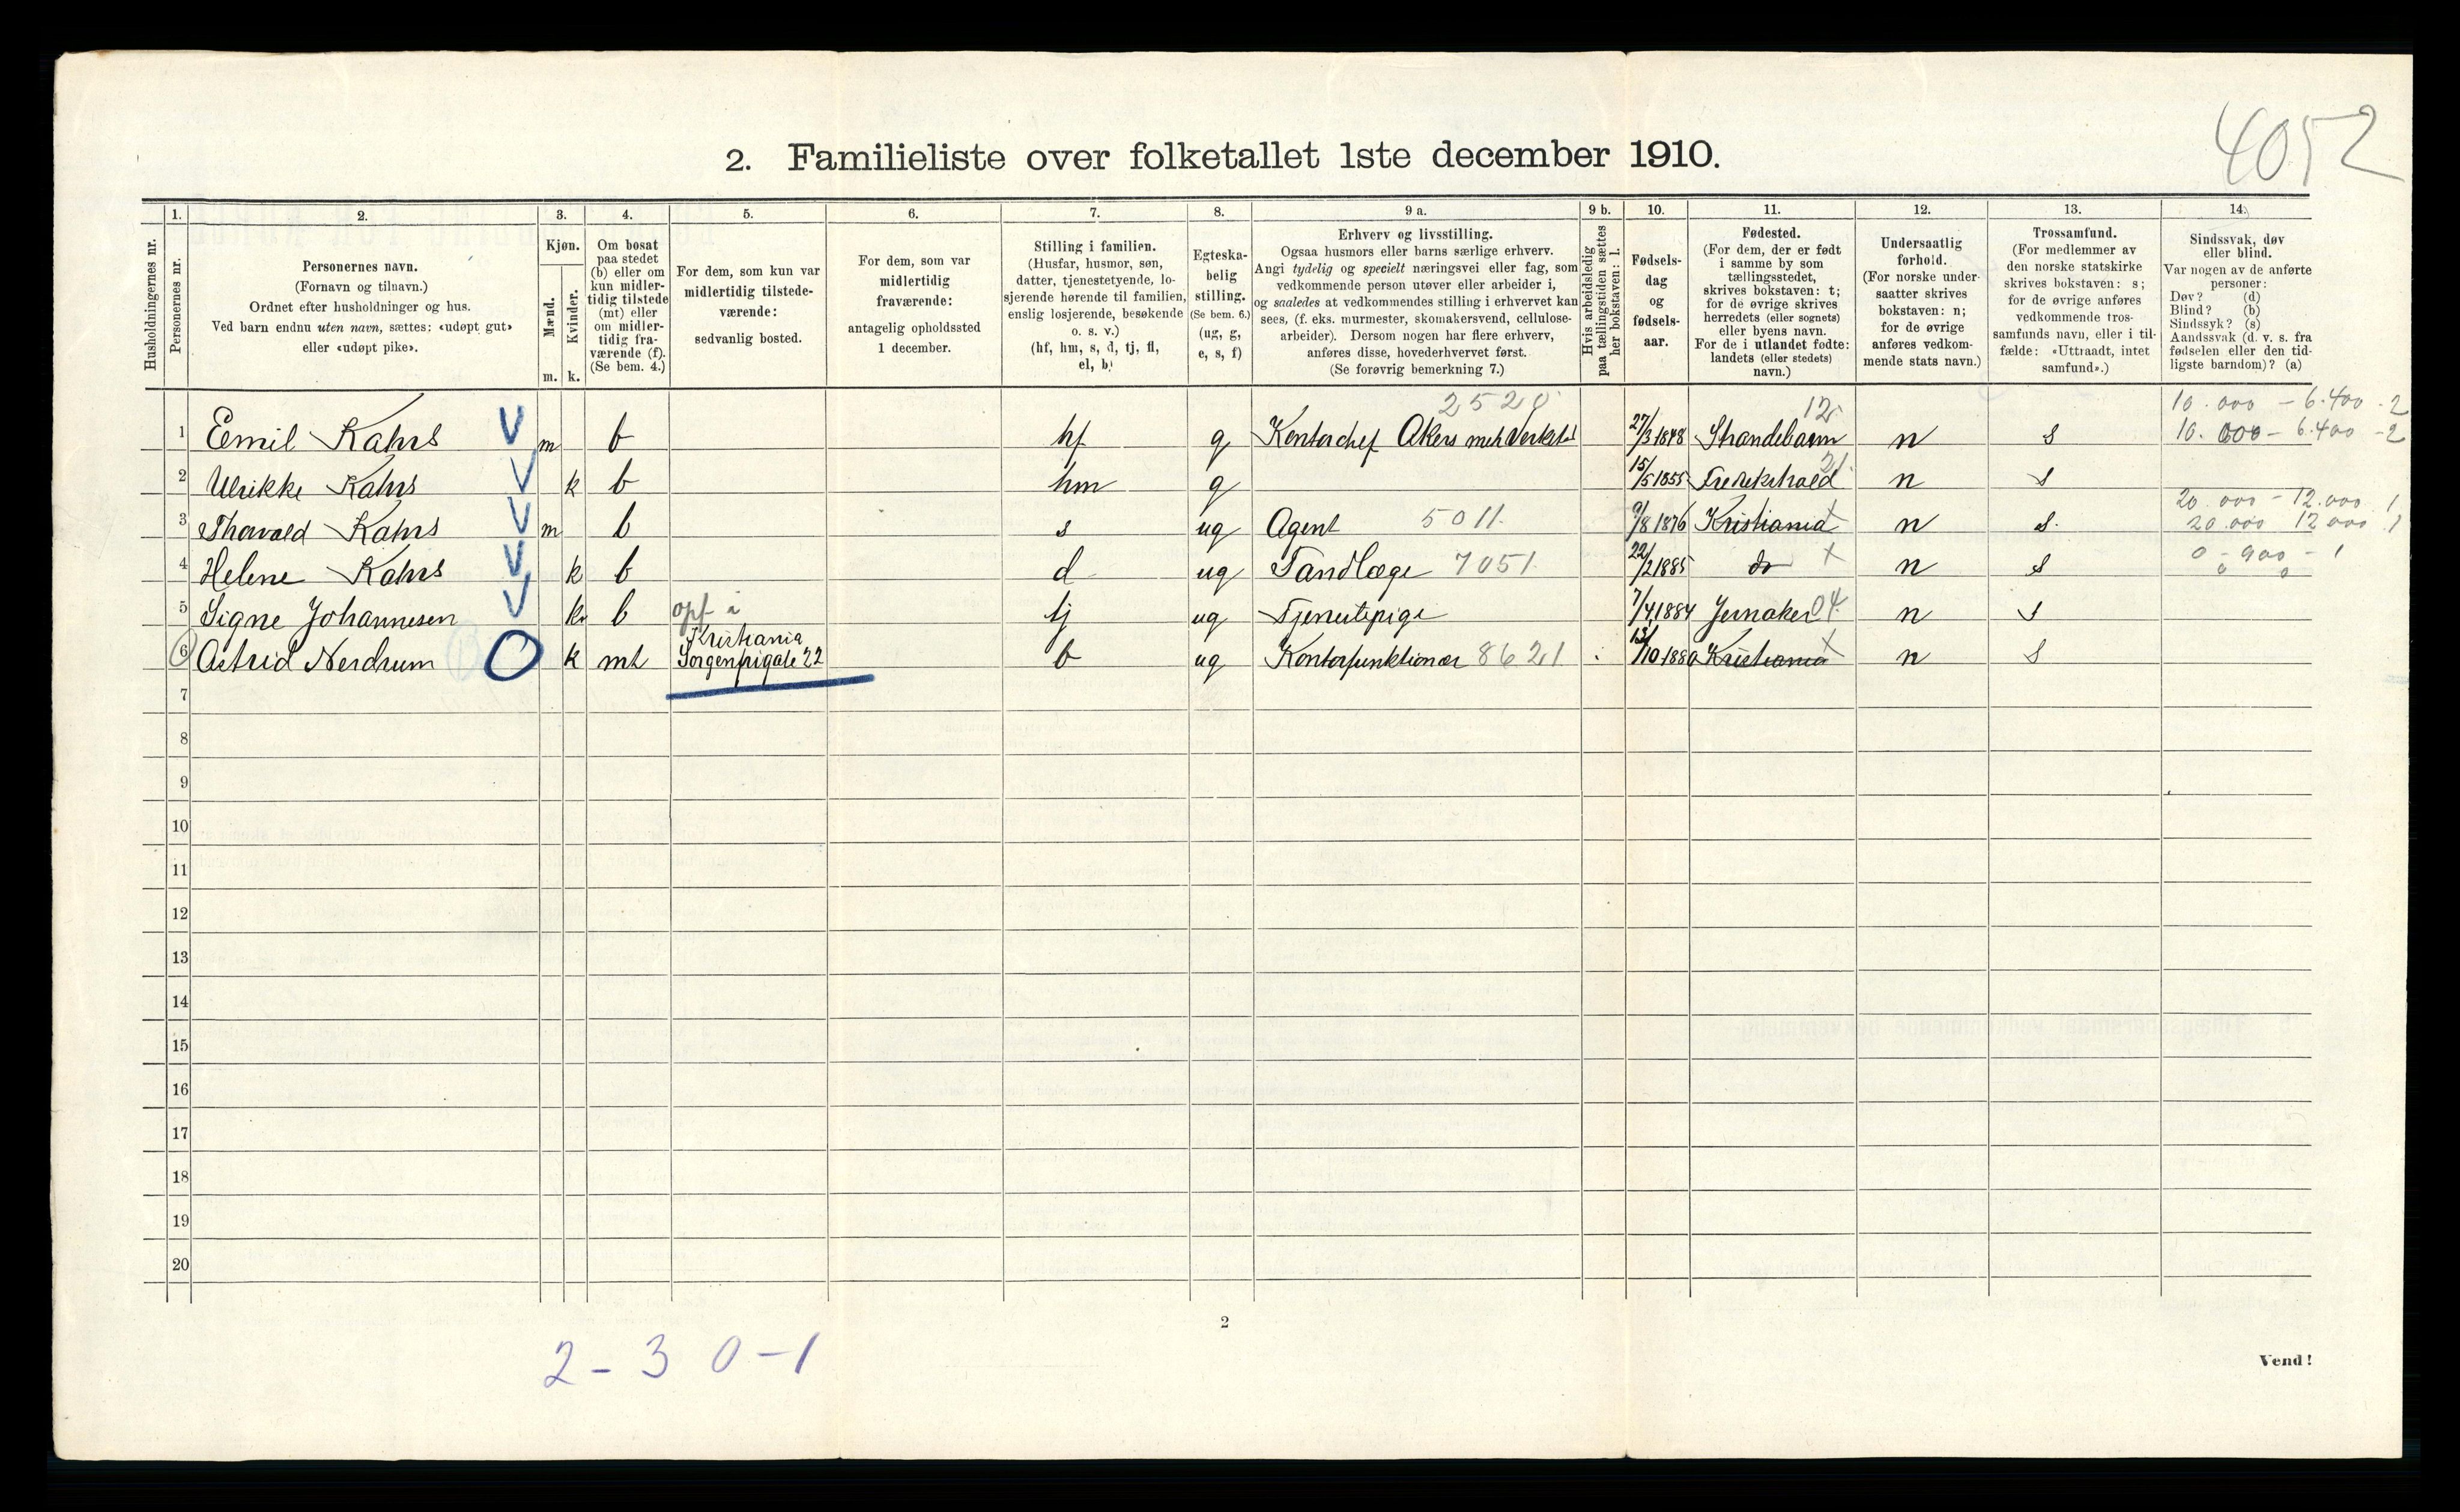 4052
2. Familieliste over folketallet 1ste december 1910.
Husholdningernes nr.
1.
Personernes nr.
2.
Personernes navn.
(Fornavn og tilnavn.)
Ordnet efter husholdninger og hus.
Ved barn endnu uten navn, sættes: «udøpt gut»
eller «udøpt pike».
3.
Kjøn.
Mænd.
Kvinder.
m. k.
4.
Om bosat
paa stedet
(b) eller om
kun midler-
tidig tilstede
(mt) eller
om midler-
tidig fra-
værende (f).
(Se bem. 4.)
5.
For dem, som kun var
midlertidig tilstede-
værende:
sedvanlig bosted.
6.
For dem, som var
midlertidig
fraværende:
antagelig opholdssted
1 december.
7.
Stilling i familien.
(Husfar, husmor, søn,
datter, tjenestetyende, lo-
sjerende hørende til familien,
enslig losjerende, besøkende
o. s. v.)
(hf, hm, s, d, tj, fl,
el, b)
8.
Egteska-
belig
stilling.
(Se bem. 6.)
(ug, g,
e, s, f)
9 a.
Erhverv og livsstilling.
Ogsaa husmors eller barns særlige erhverv.
Angi tydelig og specielt næringsvei eller fag, som
vedkommende person utøver eller arbeider i,
og saaledes at vedkommendes stilling i erhvervet kan
sees, (f. eks. murmester, skomakersvend, cellulose-
arbeider). Dersom nogen har flere erhverv,
anføres disse, hovederhvervet først.
(Se forøvrig bemerkning 7.)
9 b.
Hvis arbeidsledig
paa tællingstiden sættes
her bokstaven: l.
10.
Fødsels-
dag
og
fødsels-
aar.
11.
Fødested.
(For dem, der er født
i samme by som
tællingsstedet,
skrives bokstaven: t;
for de øvrige skrives
herredets (eller sognets)
eller byens navn.
For de i utlandet fødte:
landets (eller stedets)
navn.)
12.
Undersaatlig
forhold.
(For norske under-
saatter skrives
bokstaven: n;
for de øvrige
anføres vedkom-
mende stats navn.)
13.
Trossamfund.
(For medlemmer av
den norske statskirke
skrives bokstaven: s;
for de øvrige anføres
vedkommende tros-
samfunds navn, eller i til-
fælde: «Uttraadt, intet
samfund».)
14.
Sindssvak, døv
eller blind.
Var nogen av de anførte
personer:
Døv? (d)
Blind? (b)
Sindssyk? (s)
Aandssvak (d. v. s. fra
fødselen eller den tid-
ligste barndom)? (a)
2520 12. 10.000 – 6.400 - 2
1 Emil Kahrs V m b hf g Kontorchef Akers meh Verksted 27/3 1848 Strandebarm n s 10.000 – 6.400 - 2
2 Ulrikke Kahrs V k b hm g 15/5 1855 Fredrikshald 21. n s
20.000 – 12.000 1
3 Thorvald Kahrs V m b s ug Agent 5011. 9/8 1876 Kristiania x n s. 20.000 12000 1
4 Helene Kahrs V k b d ug Tandlæge 7051. 22/2 1885 do x n s 0 – 900 – 1
0 0
5 Signe Johannesen V k b opf i tj ug Tjenestepige 7/4 1884 Jevnaker 04. n s
Kristiania
6 Astrid Nerdrum O k mt Sorgenfrigate 22 b ug Kontorfunktionær 8621 13/10 1880 Kristiania x n s
7
8
9
10
11
12
13
14
15
16
17
18
19
20
2
2 – 3 0 – 1
Vend!